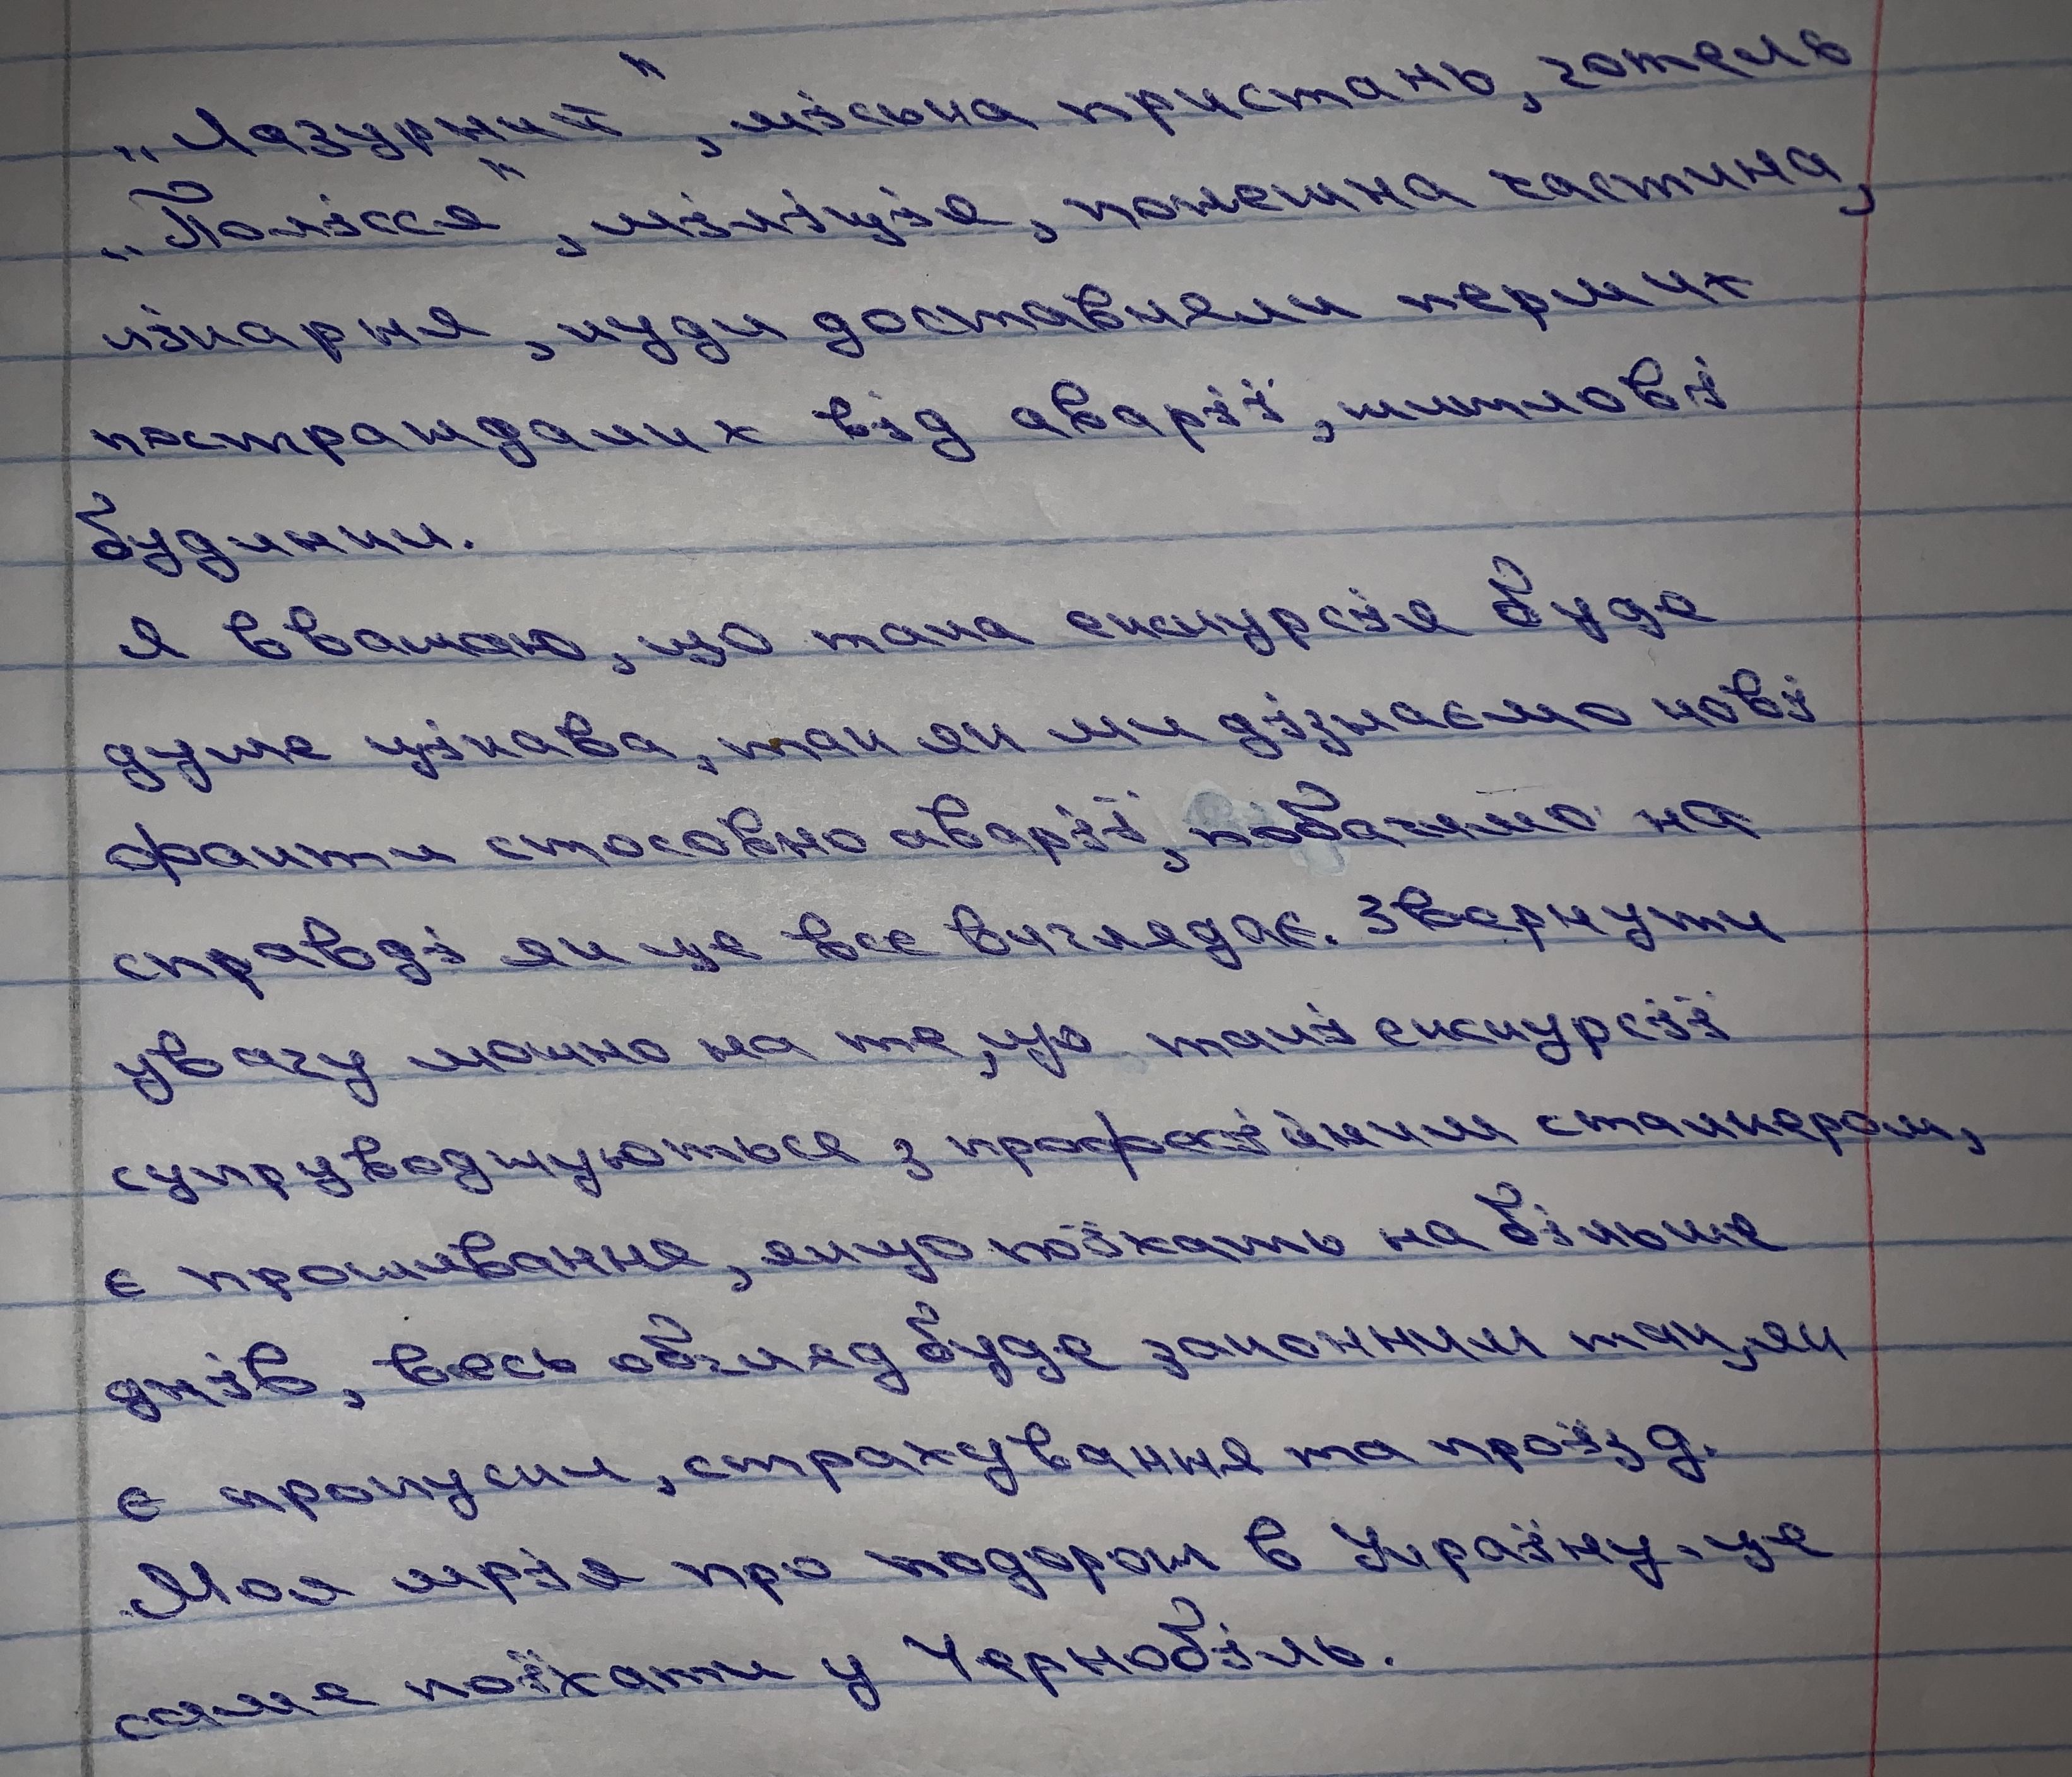 „Лазурний", міська пристань, готель
„Полісся", міліція, пожежна частина,
лікарня, куди доставляли перших
постраждалих від аварії, житлові
будинки.
Я вважаю, що така екскурсія буде
дуже цікава, так як ми дізнаємо нові
факти стосовно аварії, побачимо на
справді як це все виглядає. Звернути
увагу можно на те, що такі екскурсії
супруводжуються з професійним сталкером,
є проживання, якщо поїхать на більше
днів, весь обгляд буде законним так, як
є пропуски, страхування та проїзд.
Моя мрія про подорож в Україну-це
саме поїхати у Чернобіль.